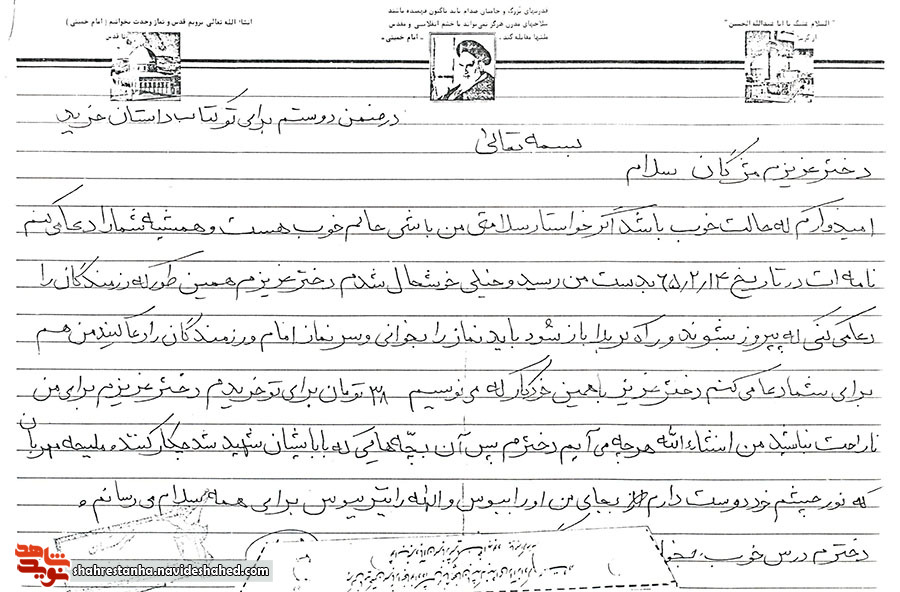 انشاء الله تعالی برویم قدس و نماز وحدت بخوانیم ( امام خمینی )
تا قدس
قدرتهای بزرگ و حامیان صدام باید تاکنون فهمیده باشند
سلاحهای مدرن هرگز نمی‌تواند با خشم انقلابی و مقدس
ملتها مقابله کند. - امام خمینی -
" السلام علیک یا ابا عبدالله الحسین "
از کربلا
در ضمن دوستم برای تو کتاب داستان خرید
بسمه تعالی
دختر عزیزم مژگان سلام
امیدوارم که حالت خوب باشد اگر خواستار سلامتی من باشی حالم خوب هست و همیشه شما را دعا می کنم
نامه ات در تاریخ ۶۵/۲/۱۴ بدست من رسید و خیلی خوشحال شدم دختر عزیزم همین طور که رزمندگان را
دعا می کنی که پیروز بشوند و راه کربلا باز شود باید نماز را بخوانی و سر نماز امام و رزمندگان را دعا کنید من هم
برای شما دعا می کنم دختر عزیز با همین خودکار که می نویسم ۳۸ تومان برای تو خریدم دختر عزیزم برای من
ناراحت نباشید من انشاءالله هرچه می آیم دخترم پس آن بچّه هایی که باباشان شهید شد چکار کنند ملیحه مهربان
که نور چشم خود دوست دارم از بجای من او را ببوس و الهه را نیز ببوس برای همه سلام می رسانم.
دخترم درس خوب
نوید شاهد
shahrestanha.navideshahed.com